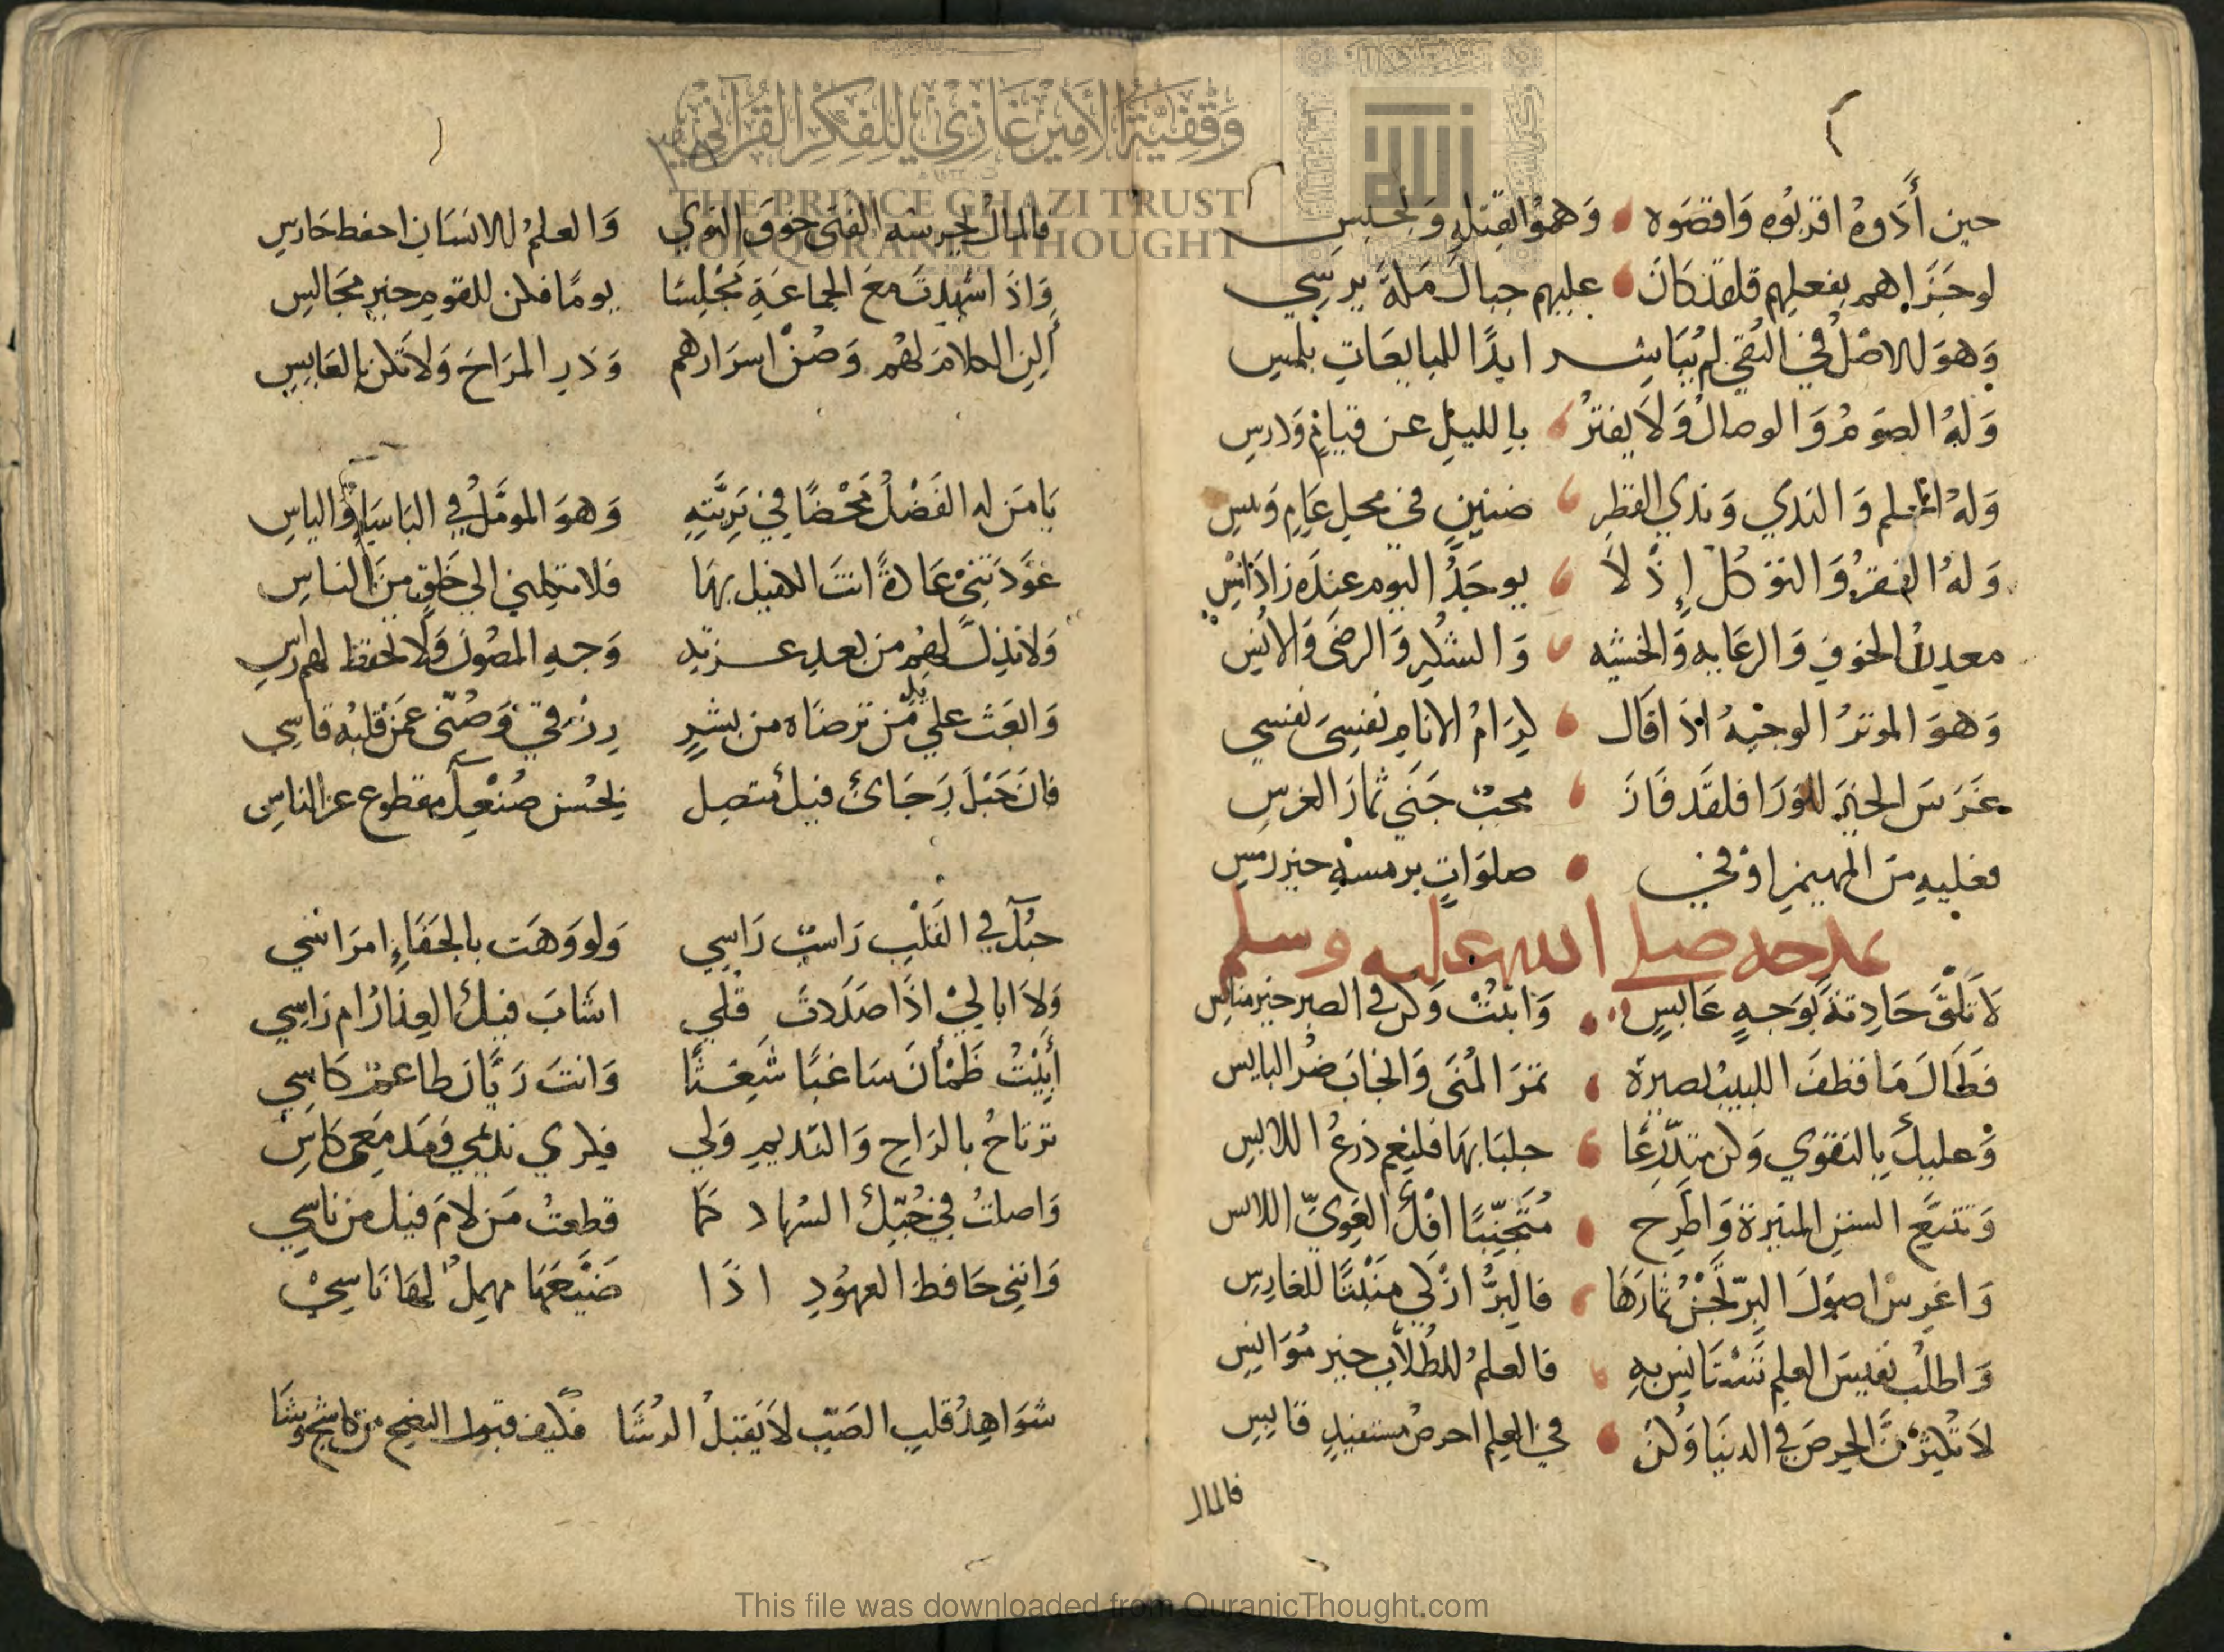 وَقْفِيَّةُ الأَمِيرِ غَازِي لِلْفِكْرِ القُرْآنِيِّ
THE PRINCE GHAZI TRUST
FOR QURANIC THOUGHT
حين أَذَوهُ اقربُوه وَاقصَوه وَهموُا بقتلهِ وَبحَبسِ
لو جَزَاهم بفعلهم فلقد كَانَ عليهم جبال مَلةَ يرسِي
وَهوَ للاصْل في التقي لم يُبَاشر ابدًا للمبايعَاتِ بلمس
وَلهُ الصَومُ وَالوصالُ وَلاَ يفترُ بالليلِ عن قيامٍ وَدرسِ
وَلهُ الحلم وَالندي وَندي القطر ضنينٍ في محل عَامٍ وَيبس
وَلهُ الفقرُ وَالتوكلُ إِذْ لاَ يوجَدُ اليوم عندَه زادَ اَمْسِ
معدنُ الخوفِ وَالرعَايه وَالخشيه وَالشكرِ وَالرضَى وَالانسِ
وَهوَ الموثرُ الوجيهُ اذَا قَال كِرَامُ الانَامِ نفسِيَ نفسي
غَرَسَ الخيرَ للوَرَا فلقَد فَازَ محبٌ جَنَي ثمارَ الغرسِ
فعليهِ منَ المهيمنِ اوْفي صلوَاتٍ برمسهِ خير رمسِ
يمدحه صلى الله عليه وسلم
لاَ تلقَ حَادِثةً بوَجهٍ عَابسٍ وَاثبُتْ وَكن في الصبر خير منافس
فَطَالَ مَا قطفَ اللبيبُ بصبرهِ ثمرَ المُنَى وَانجَابَ ضُر البايس
وَعليكَ بِالتقوي وَكن متدَرّعًا جلبَابهَا فلنِعم درعُ اللابسِ
وَتتبَّع السننِ المنيرة وَاطَّرِح مُتَجَنِّبًا افْكَ الغوِيِّ اللابس
وَاغرِس اصوَلَ البِرّ تَجْنِ ثمارَهَا فالبرُّ ازْكي مَنْبتًا للغارِسِ
وَاطلُب نفيسَ العلمِ تَسْتَانِس بهِ فالعلمُ للطُلاّبِ خير مُوَانسِ
لاَ تُكثِرَنَّ الحِرصَ في الدنيَا وَكُنْ في العلمِ احرصَ مستفيدٍ قابسِ
فالمال
فالمالُ يحرسه الفتَى خوفَ التوي وَالعلمُ للانسَانِ احفظ حَارسِ
وَاذَا شهدتَ معَ الجماعَةِ مَجْلِسًا يومًا فكن للقومِ خير مجَالسِ
أَلِنِ الكلامَ لهُم وَصُنْ اسرَارهم وَذرِ المزَاحَ وَلاَ تكن بالعَابسِ
يَا مَن له الفَضْلُ مَحْضًا في بَرِيَّتِهِ وَهوَ المومَّلُ في البَاسَاءِ وَالباسِ
عَوَّدتَنِي عَادةً انتَ الكفيل بهَا فلا تكلني الي خَلقٍ منَ الناسِ
وَلا تذِلَّ لهم من بعدِ عزتهِ وَجهِ المصُونَ وَلاَ تخفظ لهم راسِ
وَابعَث علي يد مَن ترضَاه من بشرٍ رِزْقي وَصُنّي عمَنْ قلبُه قاسي
فانَ حَبْلَ رَجَائي فيكَ متصِل بحُسْنِ صُنْعِكَ مقطوع عن الناسِ
حبُّكَ في القَلْبِ رَاسبٌ رَاسِي وَلو وَهَت بالجَفَاءِ امرَاسي
وَلاَ ابَالي اذَا صَلَدتَ قلبي اشابَ فيكَ العِذارُ ام رَاسِي
أَبِيْتُ ظَمْأَنَ سَاغبًا شَعِثًا وَانتَ رَيَّان طاعم كَاسِي
ترتَاحُ بالرَاحِ وَالنديمِ وَلي فكري نديمي وَمَدمَعي كاسِ
وَاصلتُ في حُبِّكَ السُهاد كمَا قطعتُ مَن لاَمَ فيكَ من نَاسِي
وَانني حَافظ العهُودِ اذَا ضَيَّعَهَا مهمِلٌ لهَا نَاسِي
شَوَاهِدُ قلبِ الصَبّ لاَ يَقبَلُ الرُشَا فكيف قبول النصح من كاشحٍ وَشَا
This file was downloaded from QuranicThought.com